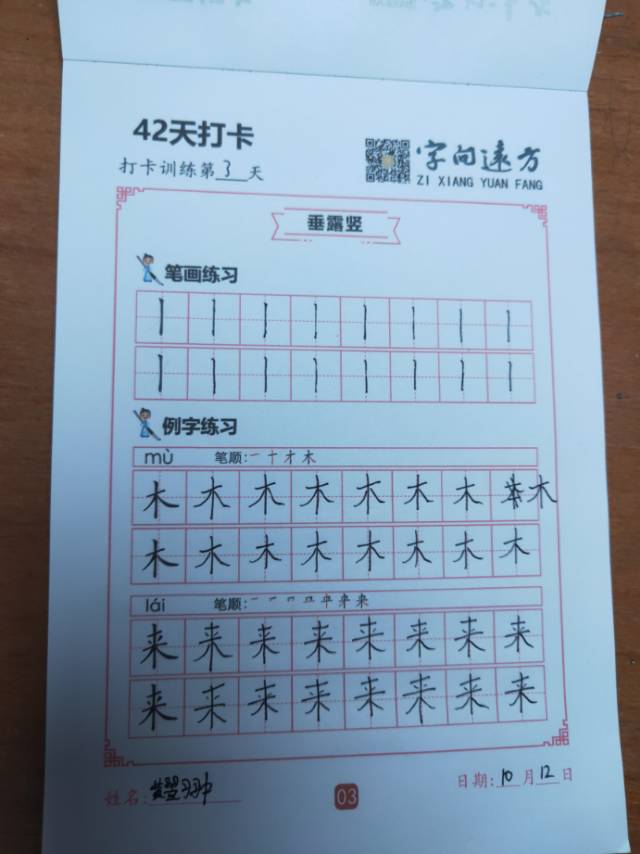 42天打卡
打卡训练第3天
字向远方
ZI XIANG YUAN FANG
垂露竖
笔画练习
丨 丨 丨 丨 丨 丨 丨 丨
丨 丨 丨 丨 丨 丨 丨 丨
例字练习
mù 笔顺: 一 十 才 木
木 木 木 木 木 木 木 木
木 木 木 木 木 木 木 木
lái 笔顺:
来 来 来 来 来 来 来 来
来 来 来 来 来 来 来 来
姓名:
03
日期: 10 月 12 日